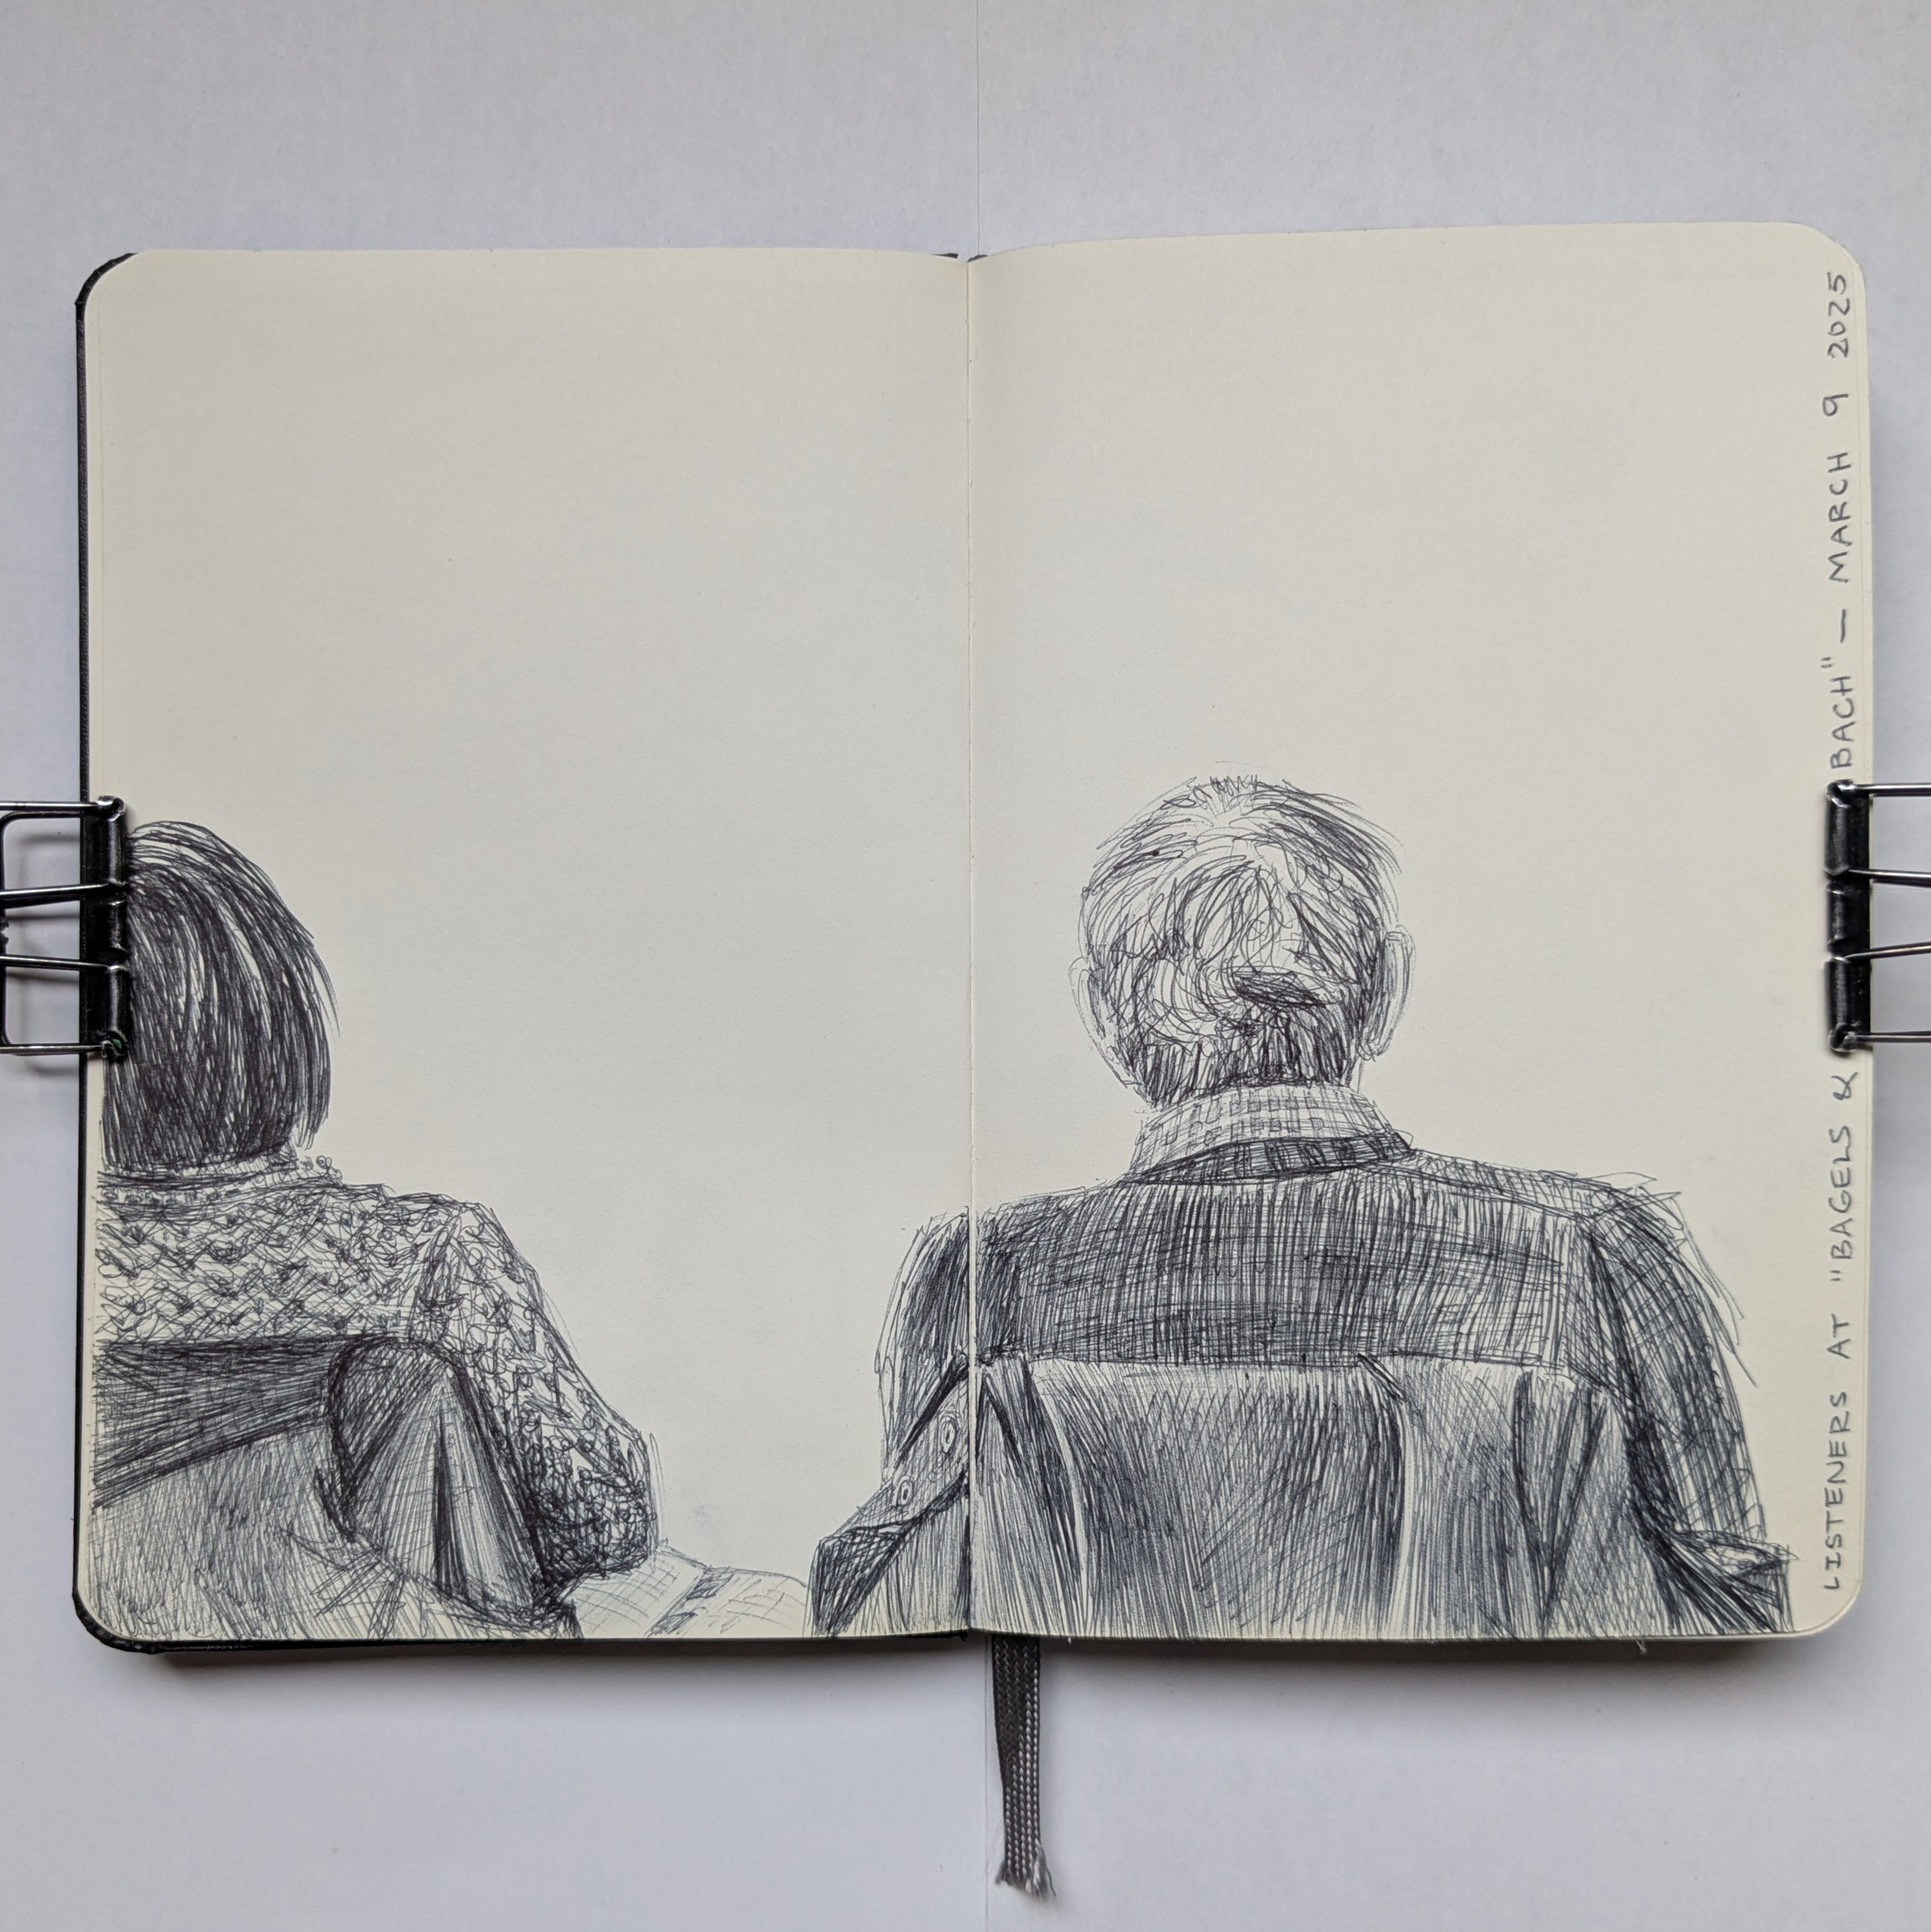 LISTENERS AT "BAGELS & BACH" — MARCH 9 2025